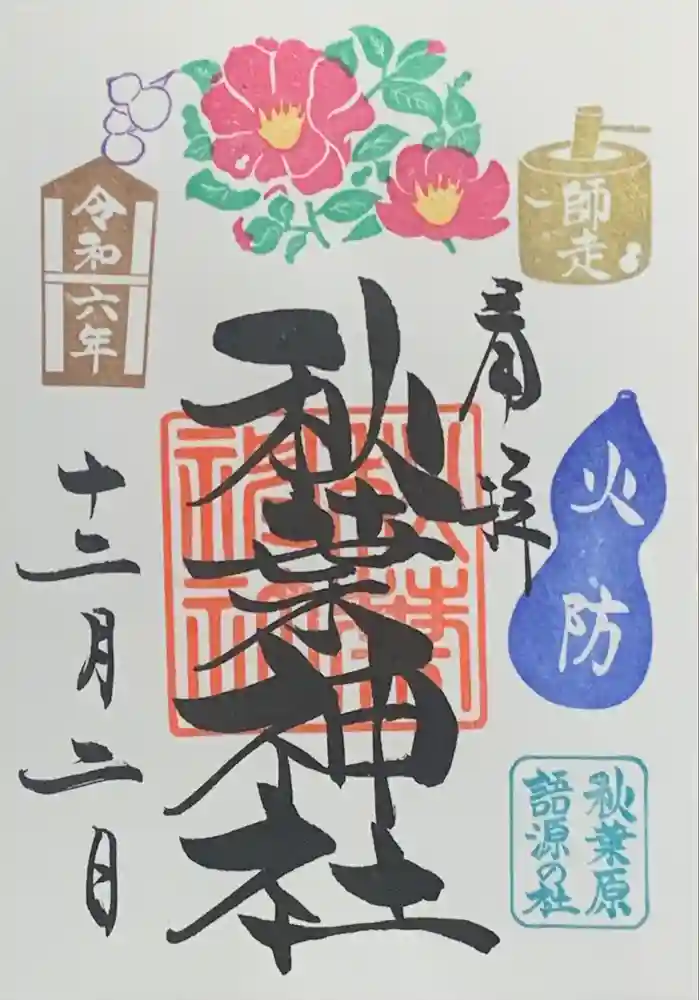 師走
奉拝
火防
秋葉原
語源の社
秋葉神社
秋葉
神社
令和六年
十二月二日